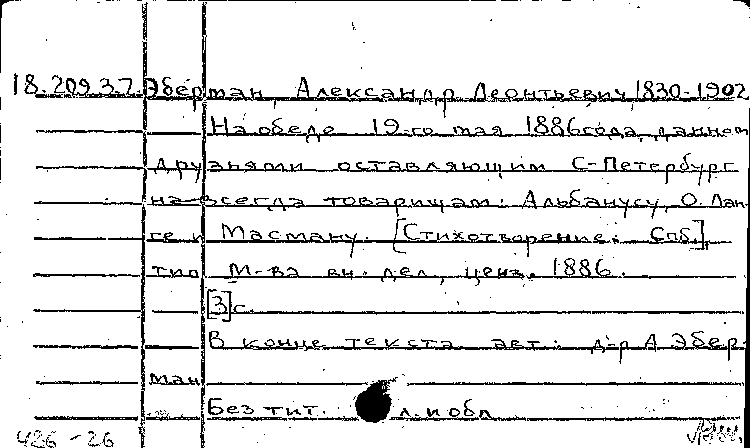 18.209.3.7. Эберман, Александр Леонтьевич, 1830-1902
На обеде 19-го мая 1886 года, данном
друзьями оставляющим С-Петербург
на-всегда товарищам: Альбанусу, О. Лан-
ге и Масману. [Стихотворение. Спб.],
тип. М-ва вн. дел, ценз. 1886.
[3]с.
В конце текста авт.: д-р А Эбер-
ман
Без тит. л. и обл.
426-26